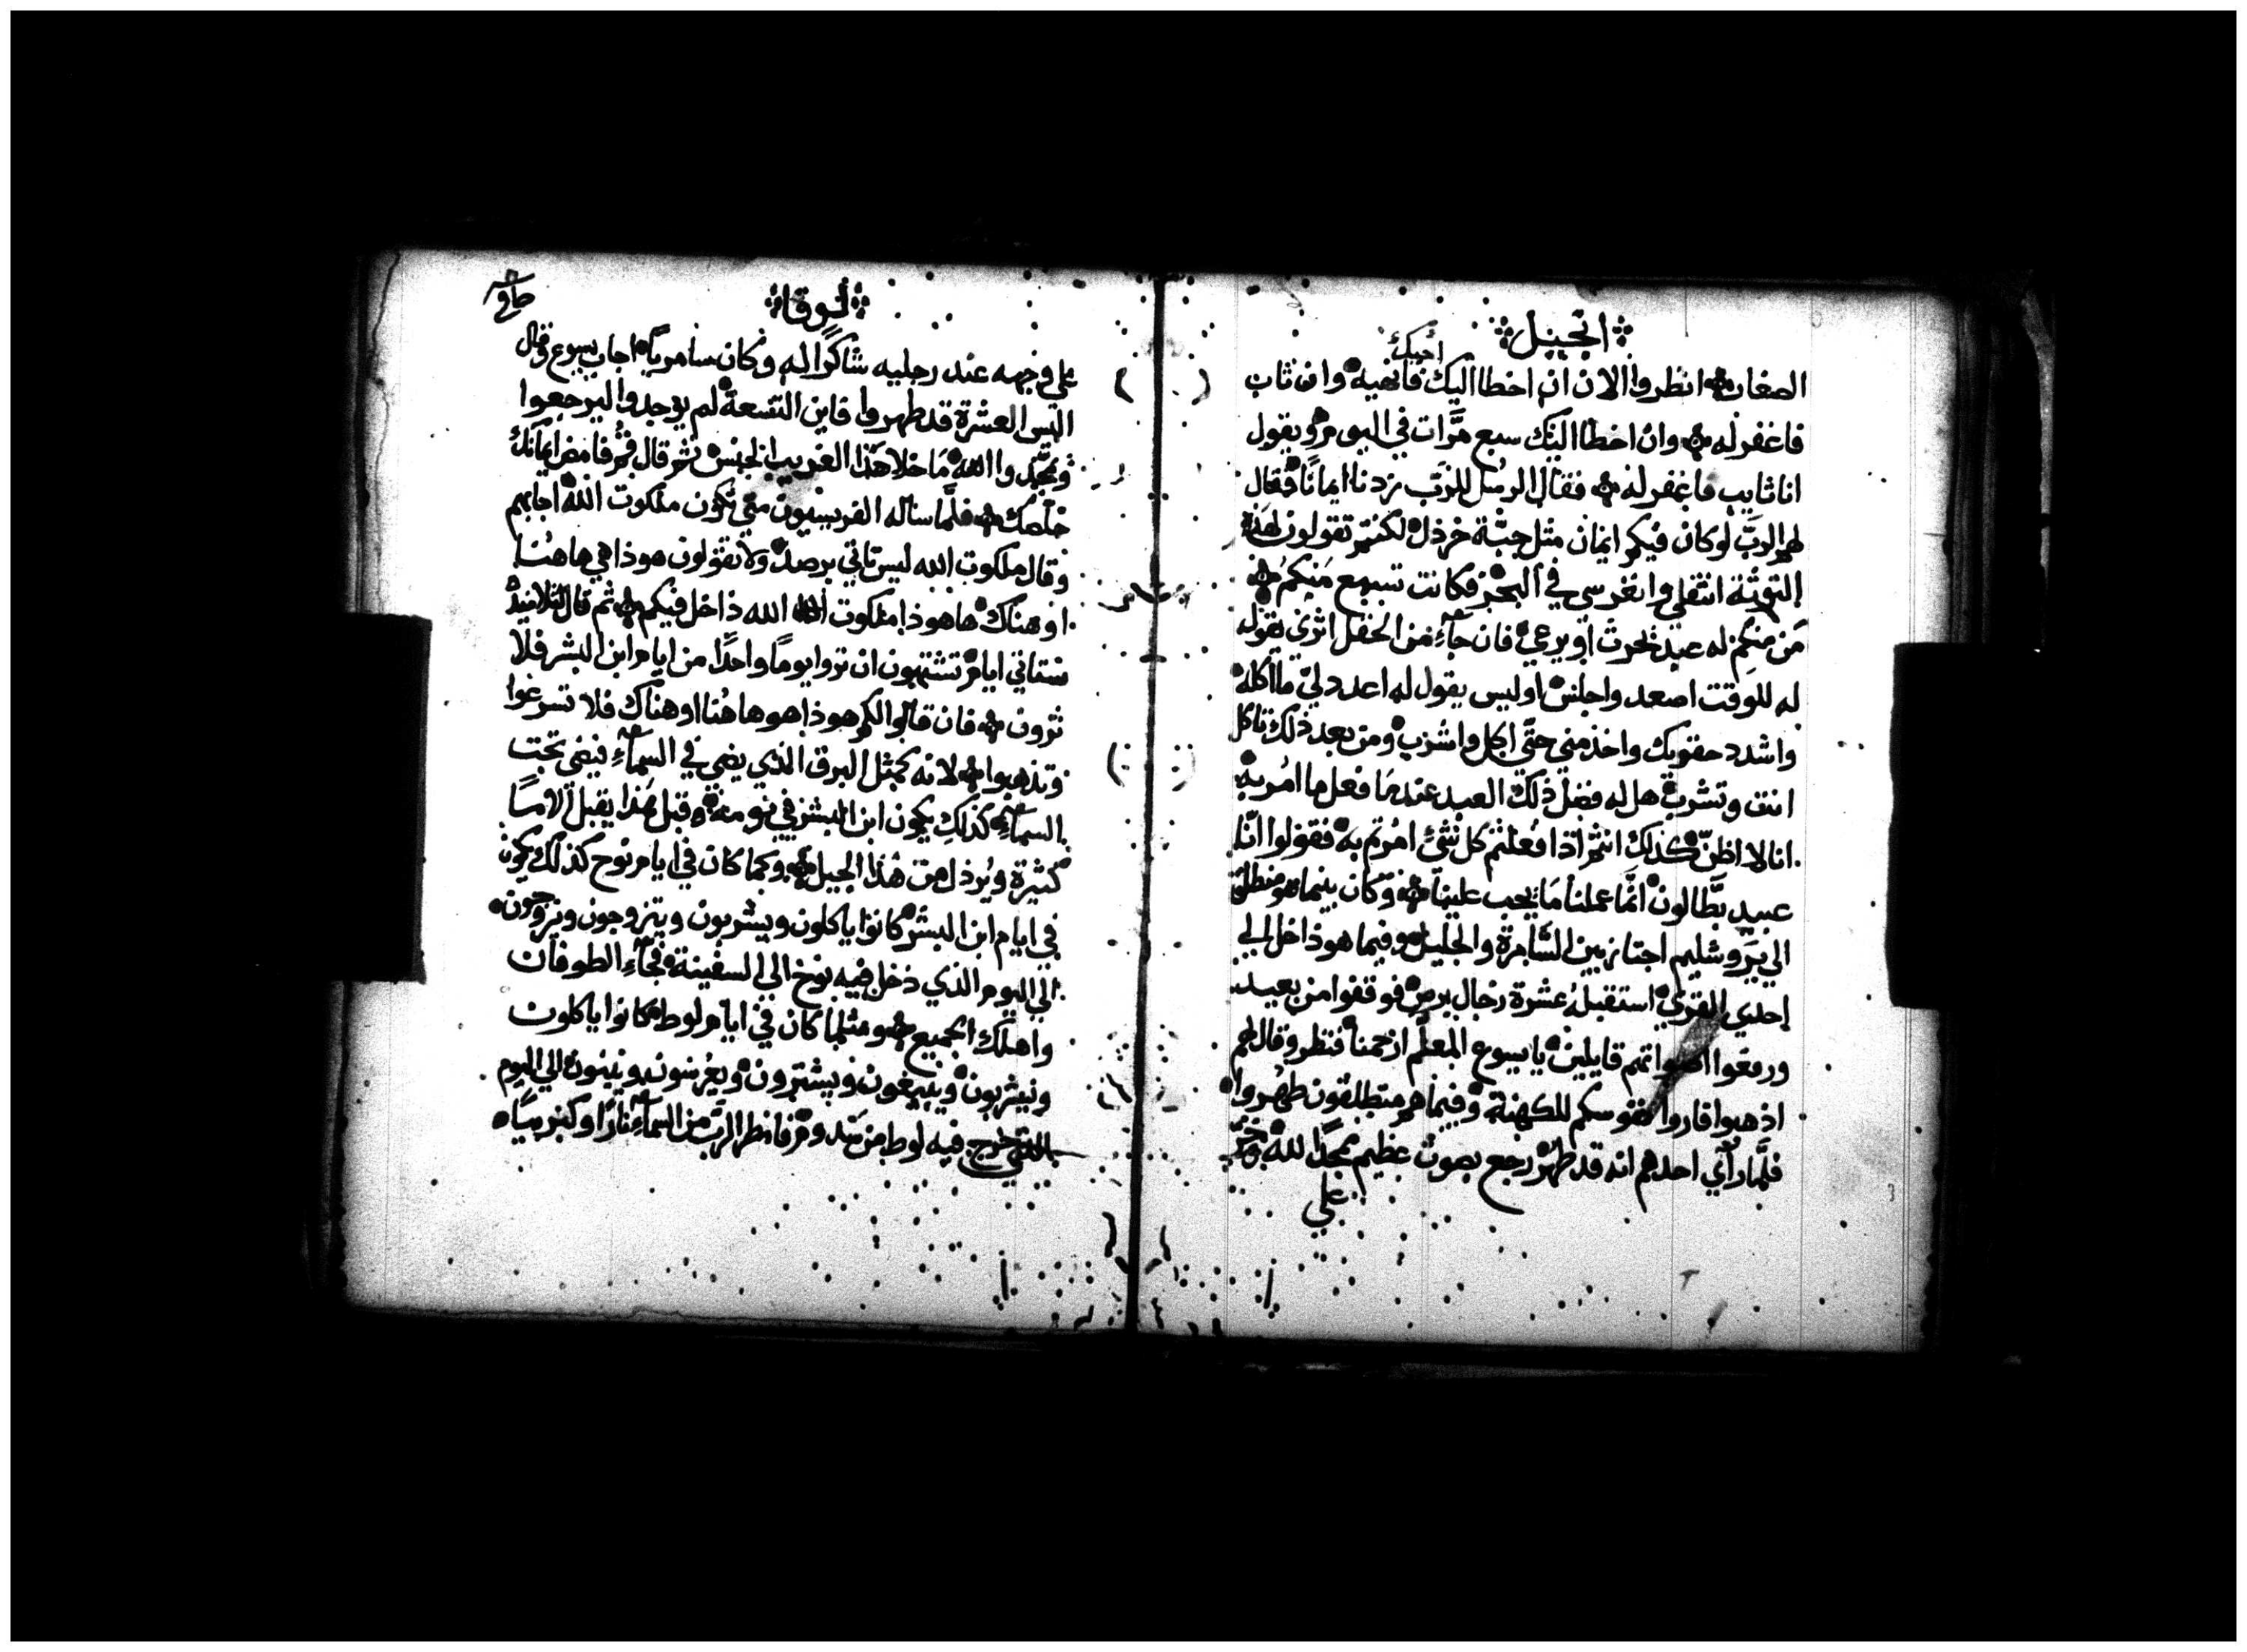 انجيل
اخيك
الصغار انظروا الان ان اخطا اليك فانهيه وان تاب
فاغفر له وان اخطا اليك سبع مرّات في اليوم ويقول
انا تايب فاغفر له فقال الرسل للربّ زدنا ايمانًا فقال
لهم الربّ لو كان فيكم ايمان مثل حبّة خرذل لكنتم تقولون لهذه
التوتة انتقلي وانغرسي في البحر فكانت تسمع منكم
من منكم له عبد يحرث او يرعي فان جآء من الحقل اتري يقول
له للوقت اصعد واجلس او ليس يقول له اعدد لي ما اكله
واشدد حقويك واخذمني حتّي اكل واشرب ومن بعد ذلك تاكل
انت وتشرب هل له فضل ذلك العبد عندما فعل ما امر به
انا لا اظنّ كذلك انتم اذا فعلتم كل شئ امرتم به فقولوا انّا
عبيد بطّالون انّما عملنا ما يجب علينا وكان بينما هو منطلق
الي يروشليم اجتاز بين السّامرة والجليل وفيما هو ذاخل الي
إحدي القري استقبله عشرة رجال برص فوقفوا من بعيد
ورفعوا اصواتهم قايلين يا يسوع المعلّم ارحمنا فنظر وقال لهم
اذهبوا فاروا نفوسكم للكهنة وفيما هم متطلقون طهروا
فلمّا رأي احدهم انه قد طهر رجع بصوت عظيم يمجدًا لله وخرّ
علي
لوقا
علي وجهه عند رجليه شاكرًا له وكان سامريًا اجاب يسوع وقال
اليس العشرة قد طهروا فاين التسعة لم يوجدوا ليرجعوا
ويمجّدوا الله ما خلا هذا الغريب الجنس ثم قال قم فامض ايمانك
خلّصك فلمّا ساله الفريسيون متي تكون ملكوت الله اجابهم
وقال ملكوت الله ليس تاتي برصد ولا يقولون هوذا هي هاهنا
او هناك ها هوذا ملكوت الله ذاخل فيكم ثم قال لتلاميذه
ستاتي ايام تشتهون ان تروا يومًا واحدًا من ايام ابن البشر فلا
ترون فان قالوا لكم هوذا هو هاهنا او هناك فلا تسرعوا
وتذهبوا لانه كمثل البرق الذي يضي في السمآء فيضي تحت
السمآء كذلك يكون ابن البشر في يومه وقبل هذا يقبل الامًا
كثيرة ويُرذل من هذا الجيل وكما كان في ايام نوح كذلك يكون
في ايام ابن البشر كانوا ياكلون ويشربون ويتزوجون ويزوجون
الي اليوم الذي ذخل فيه نوح الي السفينة فجآء الطوفان
واهلك الجميع ومثلما كان في ايام لوط كانوا ياكلون
ويشربون ويبيعون ويشترون ويغرسون ويبنون الي اليوم
الذي خرج فيه لوط من سدوم فامطر الربّ من السمآء نارًا وكبريتًا